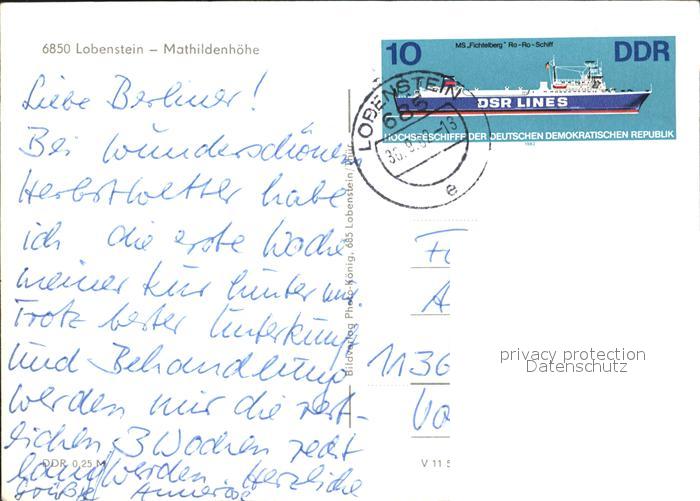 6850 Lobenstein – Mathildenhöhe
10 MS „Fichtelberg" Ro-Ro-Schiff DDR
DSR LINES
HOCHSEESCHIFFE DER DEUTSCHEN DEMOKRATISCHEN REPUBLIK
1982
LOBENSTEIN
685
30.9.82-13
e
Liebe Berliner!
Bei wunderschönem
Herbstwetter habe
ich die erste Woche
meiner Kur hinter mir.
Trotz bester Unterkunft
und Behandlung
werden mir die rest-
lichen 3 Wochen recht
lang werden. Herzliche
Grüße Annerose
DDR 0,25 M
Bildverlag Photo-König, 685 Lobenstein/Thür.
1136
V 11 5
privacy protection
Datenschutz